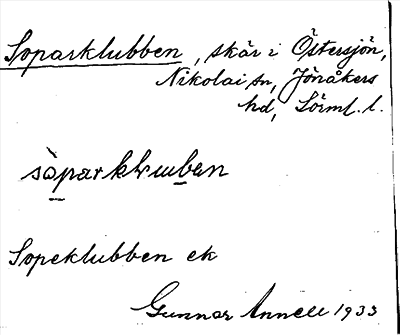 Soparklubben, skär i Östersjön,
Nikolai sn, Jönåkers
hd, Sörml. l.
sòparklubən
Sopeklubben ek
Gunnar Annell 1933